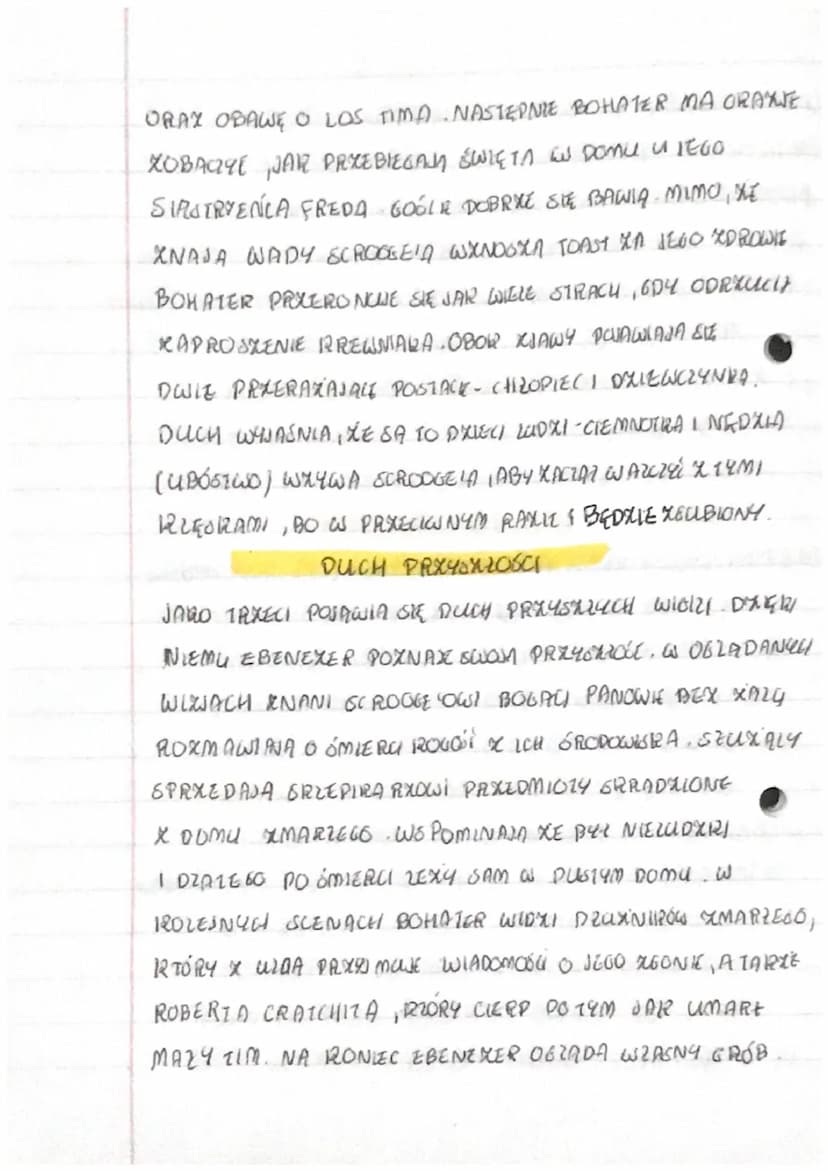 ORAZ OBAWĘ O LOS TIMA. NASTĘPNIE BOHATER MA ORAZJE
ZOBACZYĆ, JAK PRZEBIEGAJĄ ŚWIĘTA W DOMU U JEGO
SIOSTRZEŃCA FREDA. GOŚCIE DOBRZE SIĘ BAWIĄ. MIMO, ŻE
ZNAJĄ WADY SCROOGE'A WZNOSZĄ TOAST ZA JEGO ZDROWIE
BOHATER PRZEKONUJE SIĘ JAK WIELE STRACIŁ, GDY ODRZUCIŁ
ZAPROSZENIE KREWNIAKA. OBOK ZJAWY POJAWIAJĄ SIĘ
DWIE PRZERAŻAJĄCE POSTACIE - CHŁOPIEC I DZIEWCZYNKA.
DUCH WYJAŚNIA, ŻE SĄ TO DZIECI LUDZI - CIEMNOTA I NĘDZA
(UBÓSTWO) WZYWA SCROOGE'A, ABY ZACZĄŁ WALCZYĆ Z TYMI
KLĘSKAMI, BO W PRZECIWNYM RAZIE BĘDZIE ZGUBIONY.
DUCH PRZYSZŁOŚCI
JAKO TRZECI POJAWIA SIĘ DUCH PRZYSZŁYCH WIGILI. DZIĘKI
NIEMU EBENEZER POZNAJE SWOJĄ PRZYSZŁOŚĆ. W OGLĄDANYCH
WIZJACH ZNANI SCROOGE'OWI BOGACI PANOWIE BEZ ŻALU
ROZMAWIAJĄ O ŚMIERCI KOGOŚ Z ICH ŚRODOWISKA. SŁUŻĄCY
SPRZEDAJĄ GRZEPIKARZOWI PRZEDMIOTY SKRADZIONE
Z DOMU ZMARŁEGO. WSPOMINAJĄ ŻE BYŁ NIELUDZKI
I DLATEGO PO ŚMIERCI LEŻY SAM W PUSTYM DOMU. W
KOLEJNYCH SCENACH BOHATER WIDZI DŁUŻNIKÓW ZMARŁEGO,
KTÓRY Z ULGĄ PRZYJMUJE WIADOMOŚĆ O JEGO ZGONIE, A TAKŻE
ROBERTA CRATCHITA, KTÓRY CIERP PO TYM JAK UMARŁ
MAŁY TIM. NA KONIEC EBENEZER OGLĄDA WŁASNY GRÓB.